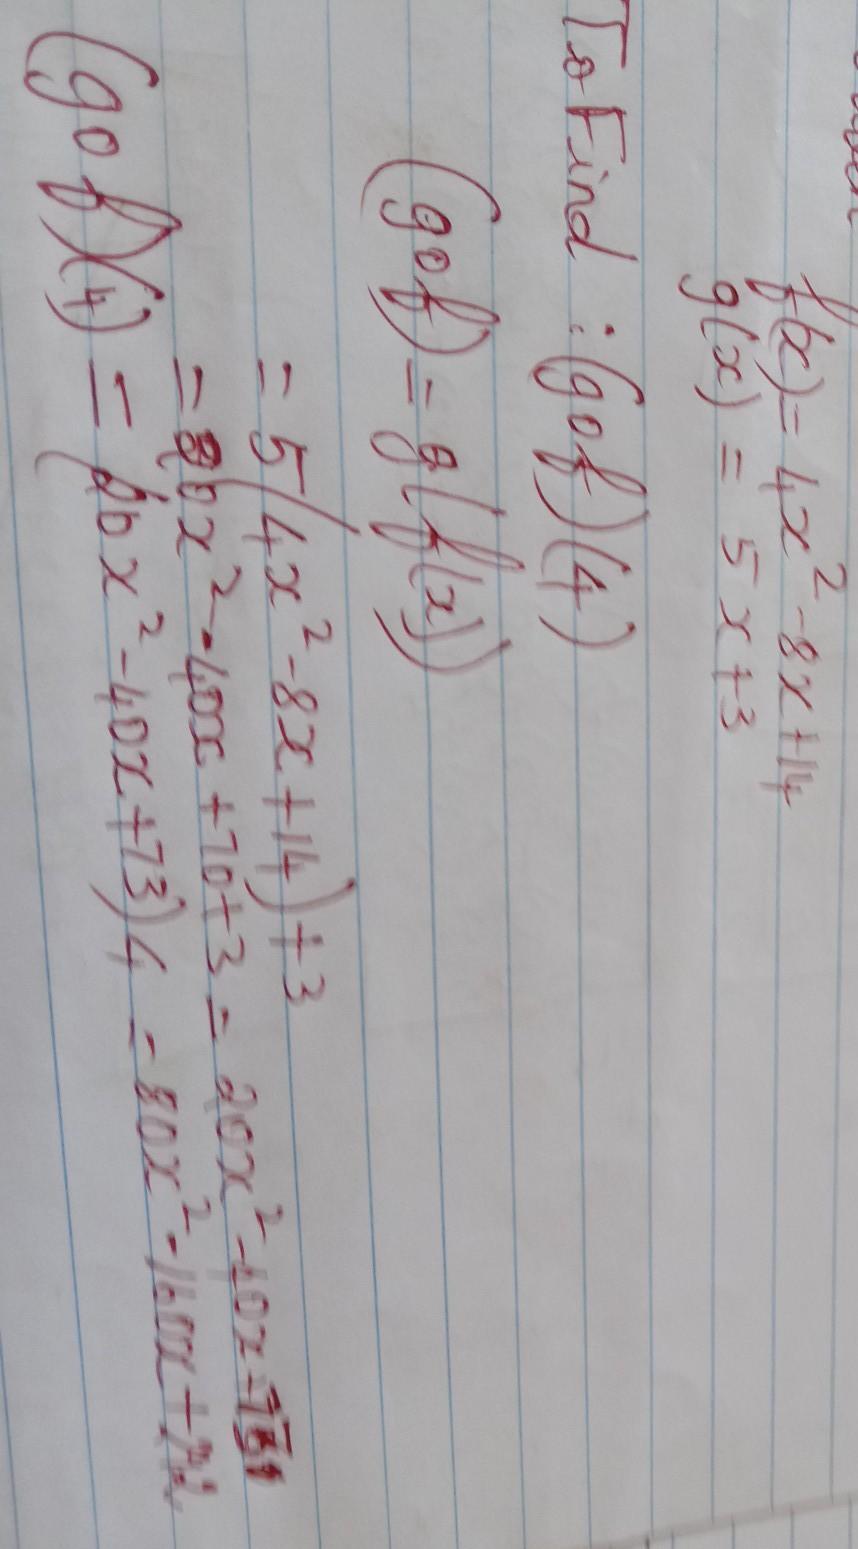 f(x) = 4x² - 8x + 14
g(x) = 5x + 3
To Find : (gof)(4)
(gof) = g(f(x))
= 5(4x² - 8x + 14) + 3
= 20x² - 40x + 70 + 3 = 20x² - 40x
(gof)(4) = (20x² - 40x + 73)4 = 80x² - 160x +